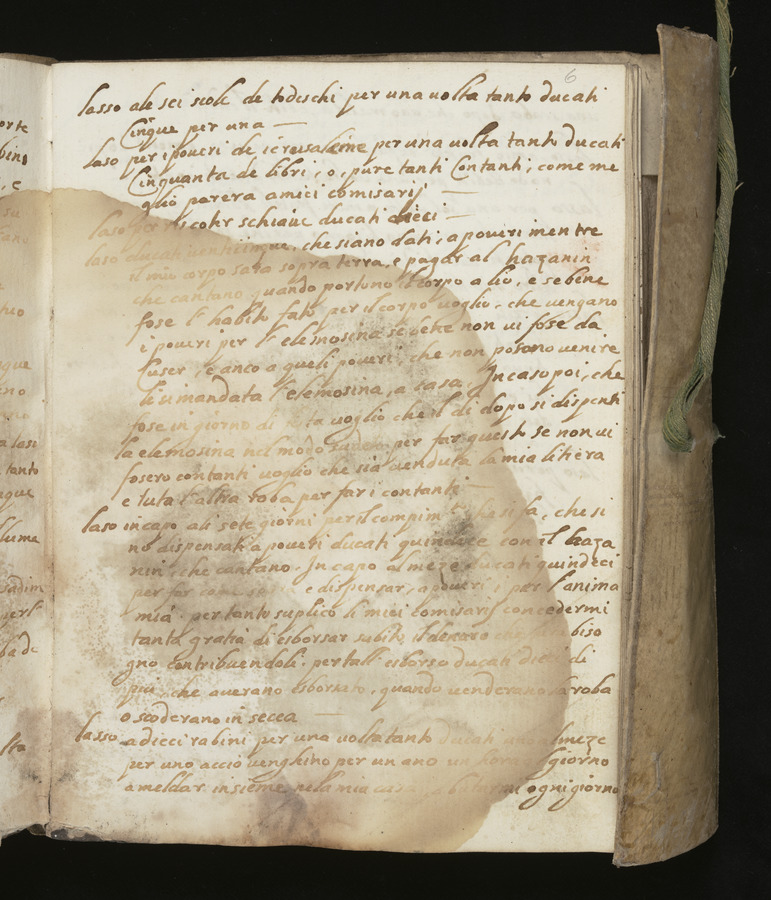 6
lasso ale sei scole de todeschi per una uolta tanto ducati
Cinque per una
laso per i poueri de ierusaleme per una uolta tanto ducati
Cinquanta de libri, o, pure tanti Contanti, come me
glio parera amici comisarij
laso per riscotir schiaui ducati dieci
laso ducati uenticinque, che siano dati, a poueri mentre
il mio corpo sara sopra terra, e pagar al hazanin
che cantano quando portono il corpo a lio, e se bene
fose l'habito fato per il corpo uoglio, che uengano
i poueri per l'elemosina se bene non ui fose da
, e anco a queli poueri, che non posono uenire
li si mandata l'elemosina, a casa, In caso poi, che
fose in giorno di festa uoglio che il di dopo si dispensi
la elemosina nel modo per far questo se non ui
fosero contanti uoglio che sia uenduta la mia litiera
e tuta l'altra roba per far i contanti
laso in capo ali sete giorni per il compim.to che si fa, che si
no dispensati a poueri ducati quindece con il haza
nin, che cantano. In capo al meze ducati quindeci
per far come e dispensar, a poueri, per l'anima
mia per tanto suplico li miei comisarij concedermi
tanta gratia di esborsar subito il denaro che biso
gno contribuendoli per tall esborso ducati dieci di
piu, che auerano esborsato, quando uenderano la roba
o scoderano in secca
lasso a dieci rabini per una uolta tanto ducati uno almeze
per uno accio uenghino per un ano un hora al giorno
a meldar insieme nela mia casa ogni giorno